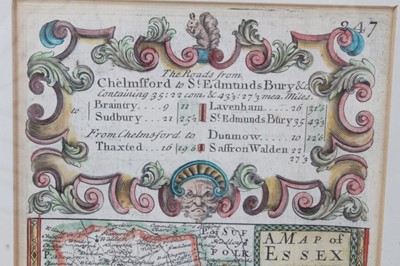 247
The Roads from
Chelmsford to St. Edmunds Bury &c.
Containing 35:22 com: & 43½:27½ mea. Miles
to Braintry ... 9 11 Lavenham ... 26 31'6
Sudbury ... 21 25½ St. Edmunds Bury 35 43½
From Chelmsford to Dunmow ... 10 12'6
Thaxted ... 16 19'6 Saffron Walden 22 27'3
P. of SUF
FOLK
A MAP of
ESSEX